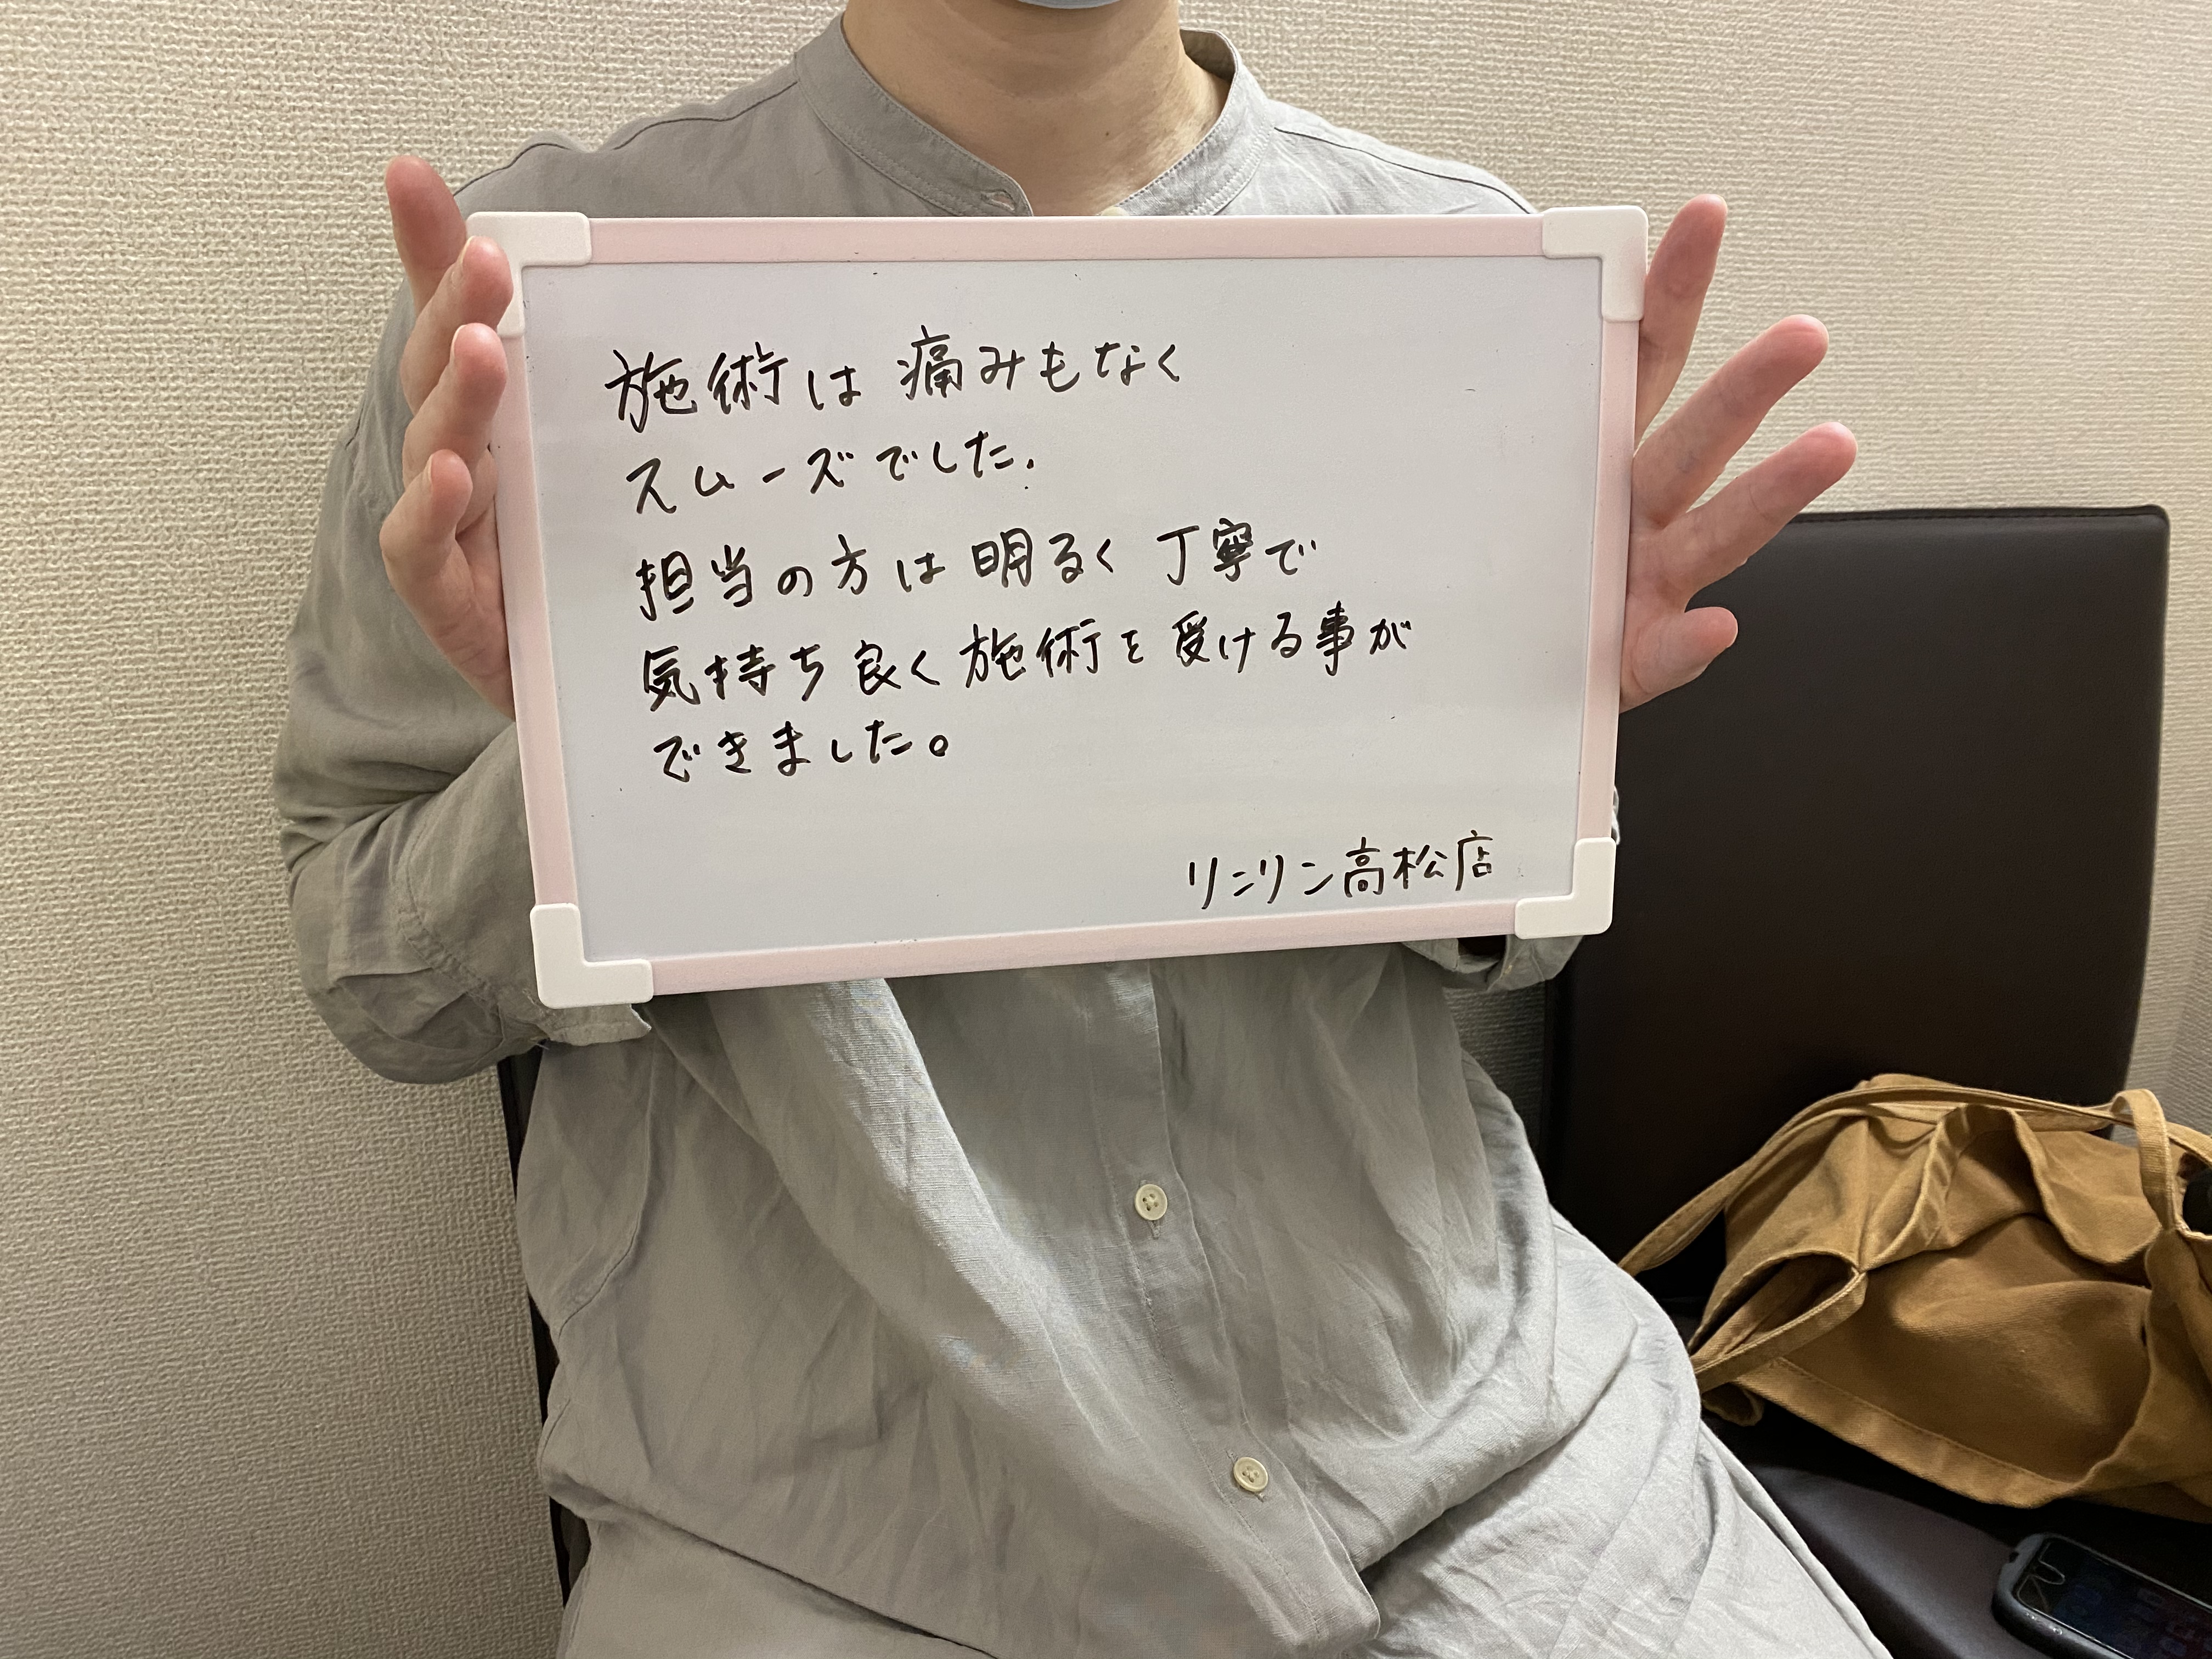 施術は痛みもなく
スムーズでした.
担当の方は明るく丁寧で
気持ち良く施術を受ける事が
できました。
リンリン高松店